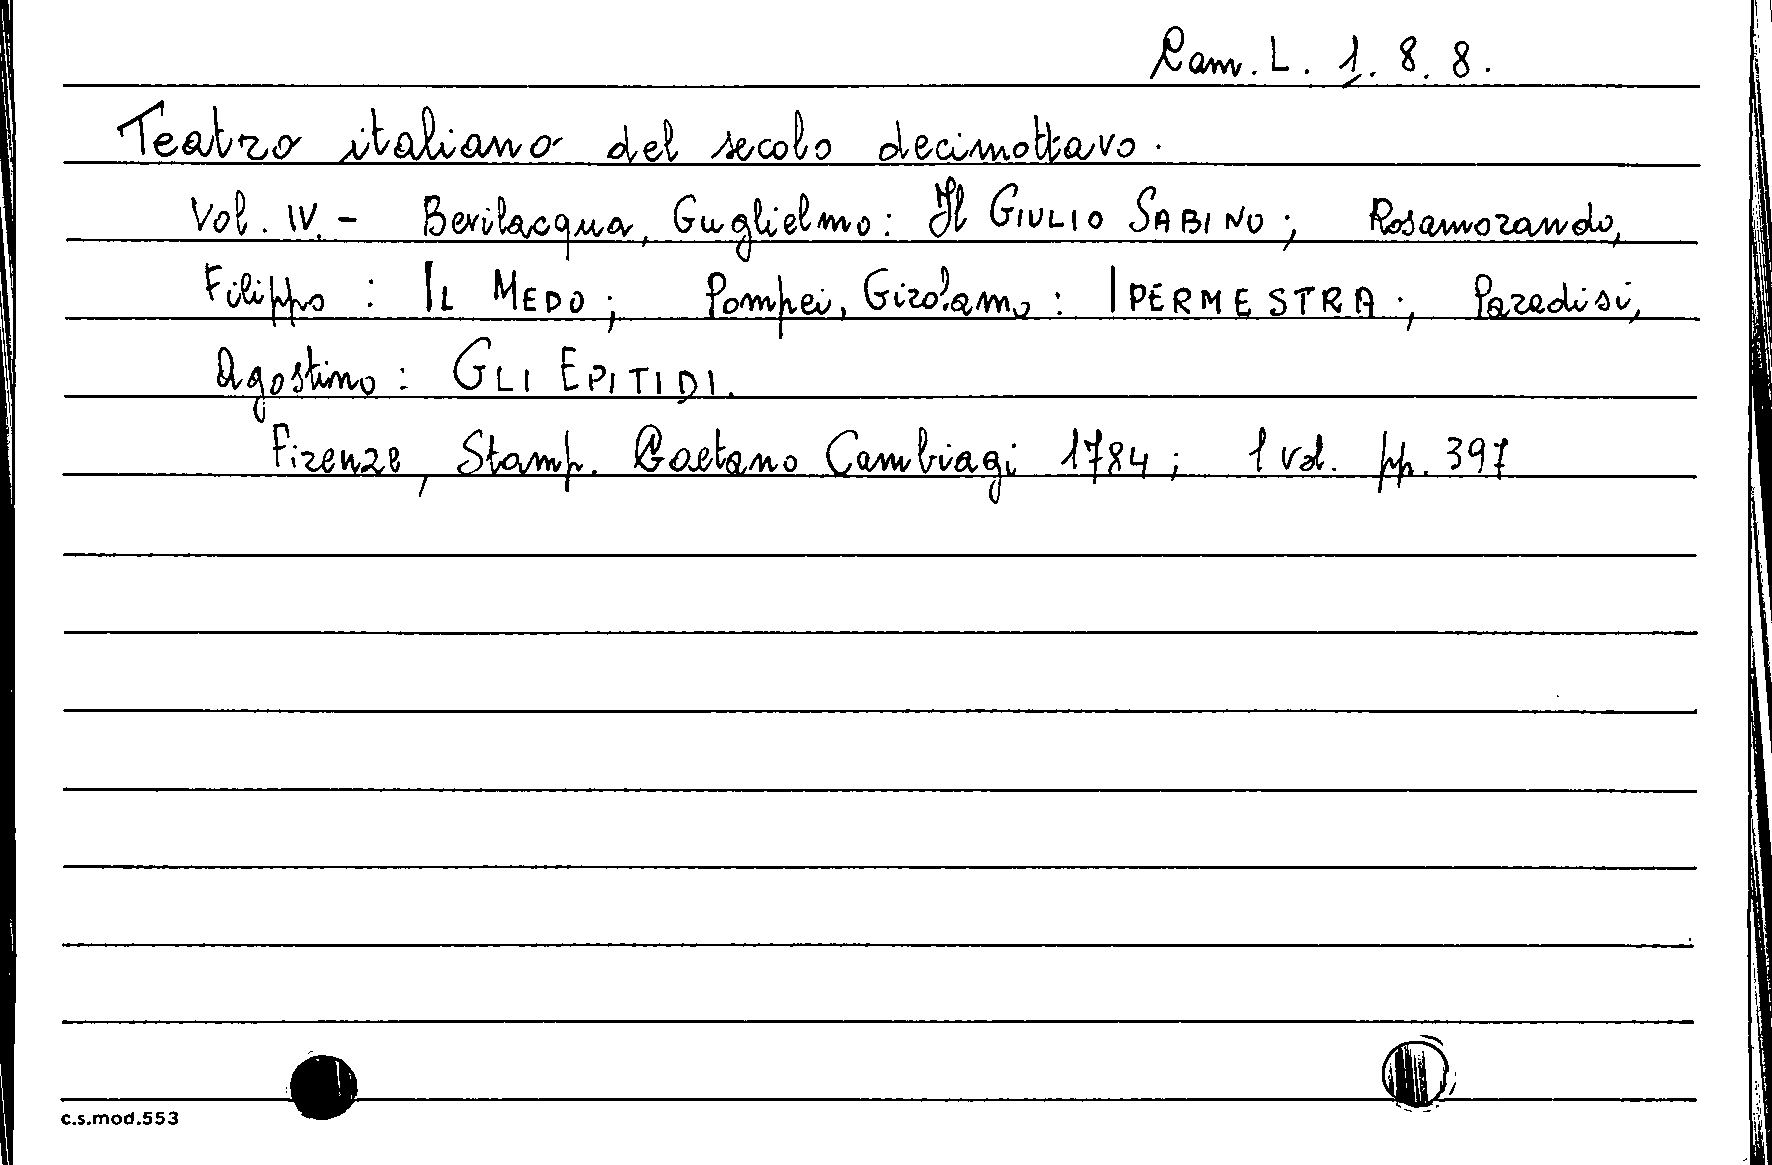 Ram. L. 1. 8. 8.
Teatro italiano del secolo decimottavo.
Vol. IV. - Bevilacqua, Guglielmo: Il GIULIO SABINO; Rosamorando,
Filippo: IL MEDO; Pompei, Girolamo: IPERMESTRA; Paradisi,
Agostino: GLI EPITIDI.
Firenze, Stamp. Gaetano Cambiagi 1784; 1 vol. pp. 397
c.s.mod.553